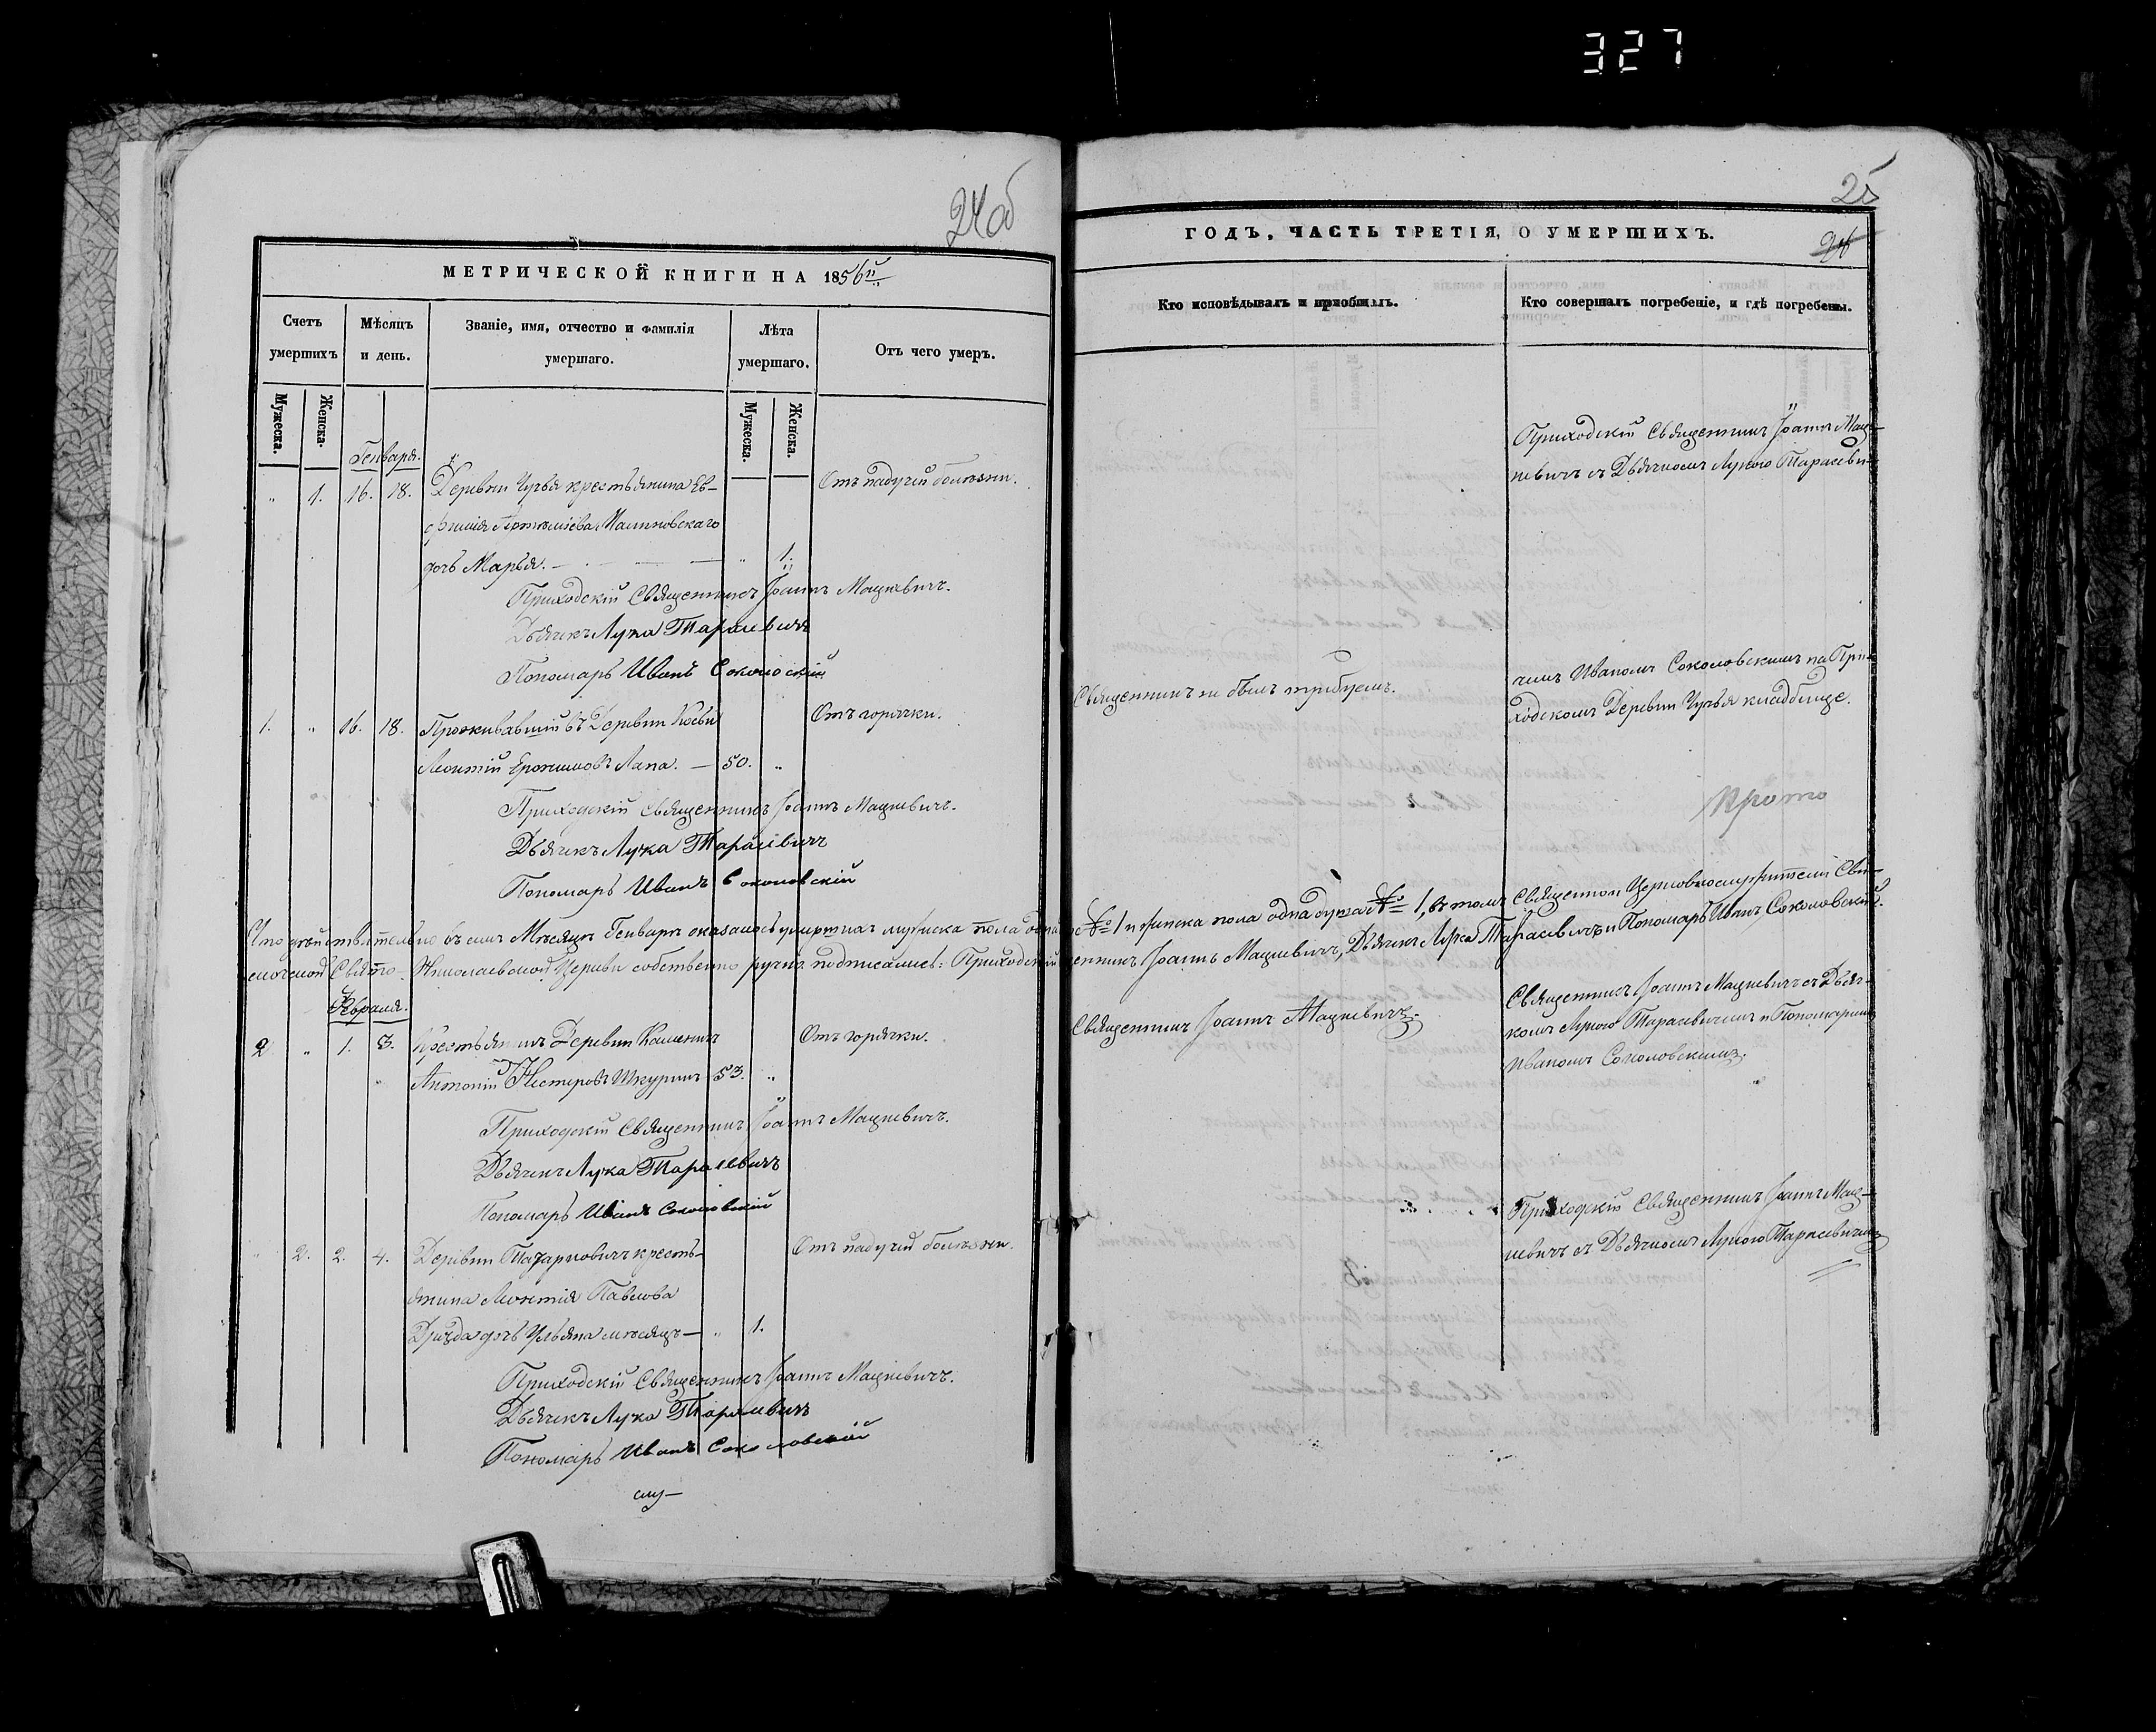 327
24об
МЕТРИЧЕСКОЙ КНИГИ НА 1856й
Счетъ умершихъ
Мѣсяцъ и день.
Званіе, имя, отчество и фамилія умершаго.
Лѣта умершаго.
Отъ чего умеръ.
Мужеска.
Женска.
Мужеска.
Женска.
Генваря.
" 1. 16. 18. Деревни Чучья крестьянина Ев- Отъ падучей болѣзни.
фимія Малиновскаго
дочь Марья. — " 1.
Приходскій Священникъ Іоаннъ Мацкевичъ.
Дьячекъ Лука Тарасевичъ
Пономарь Иванъ Соколоскій
1. " 16. 18. Проживавшій въ Деревни Отъ горячки.
Леонтій Лапа. — 50. "
Приходскій Священникъ Іоаннъ Мацкевичъ.
Дьячекъ Лука Тарасевичъ
Пономарь Иванъ Соколовскій
Что дѣйствительно въ семъ Мѣсяцѣ Генварѣ оказалось умершихъ мужеска пола одна
Свято-Николаевской Церкви собственно ручно подписались: Приходскій
Февраля.
2 " 1. 3. Крестьянинъ Деревни Отъ горячки.
Антоній Нестеровъ Шкуринъ 53. "
Приходскій Священникъ Іоаннъ Мацкевичъ.
Дьячекъ Лука Тарасевичъ
Пономарь Иванъ Соколовскій
" 2. 2. 4. Деревни кресть- Отъ падучей болѣзни.
янина Леонтія Павлова
дочь Ульяна мѣсяцъ — " 1.
Приходскій Священникъ Іоаннъ Мацкевичъ.
Дьячекъ Лука Тарасевичъ
Пономарь Иванъ Соколовскій
25
ГОДЪ, ЧАСТЬ ТРЕТІЯ, О УМЕРШИХЪ.
Кто исповѣдывалъ и пріобщалъ.
Кто совершалъ погребеніе, и гдѣ погребены.
Приходскій Священникъ Іоаннъ Мац-
кевичъ съ Дьячкомъ Лукою Тарасеви-
Священникъ не былъ требуемъ.
чемъ Иваномъ Соколовскимъ на При-
ходскомъ Деревни Чучья кладбище.
№ 1 и женска пола одна душа № 1, въ томъ Священно и Церковнослужители
Священникъ Іоаннъ Мацкевичъ, Дьячекъ Лука Тарасевичъ и Пономарь Иванъ Соколовскій.
Священникъ Іоаннъ Мацкевичъ.
Священникъ Іоаннъ Мацкевичъ съ Дьяч-
комъ Лукою Тарасевичемъ и Пономаремъ
Иваномъ Соколовскимъ.
Приходскій Священникъ Іоаннъ Мац-
кевичъ съ Дьячкомъ Лукою Тарасевичемъ